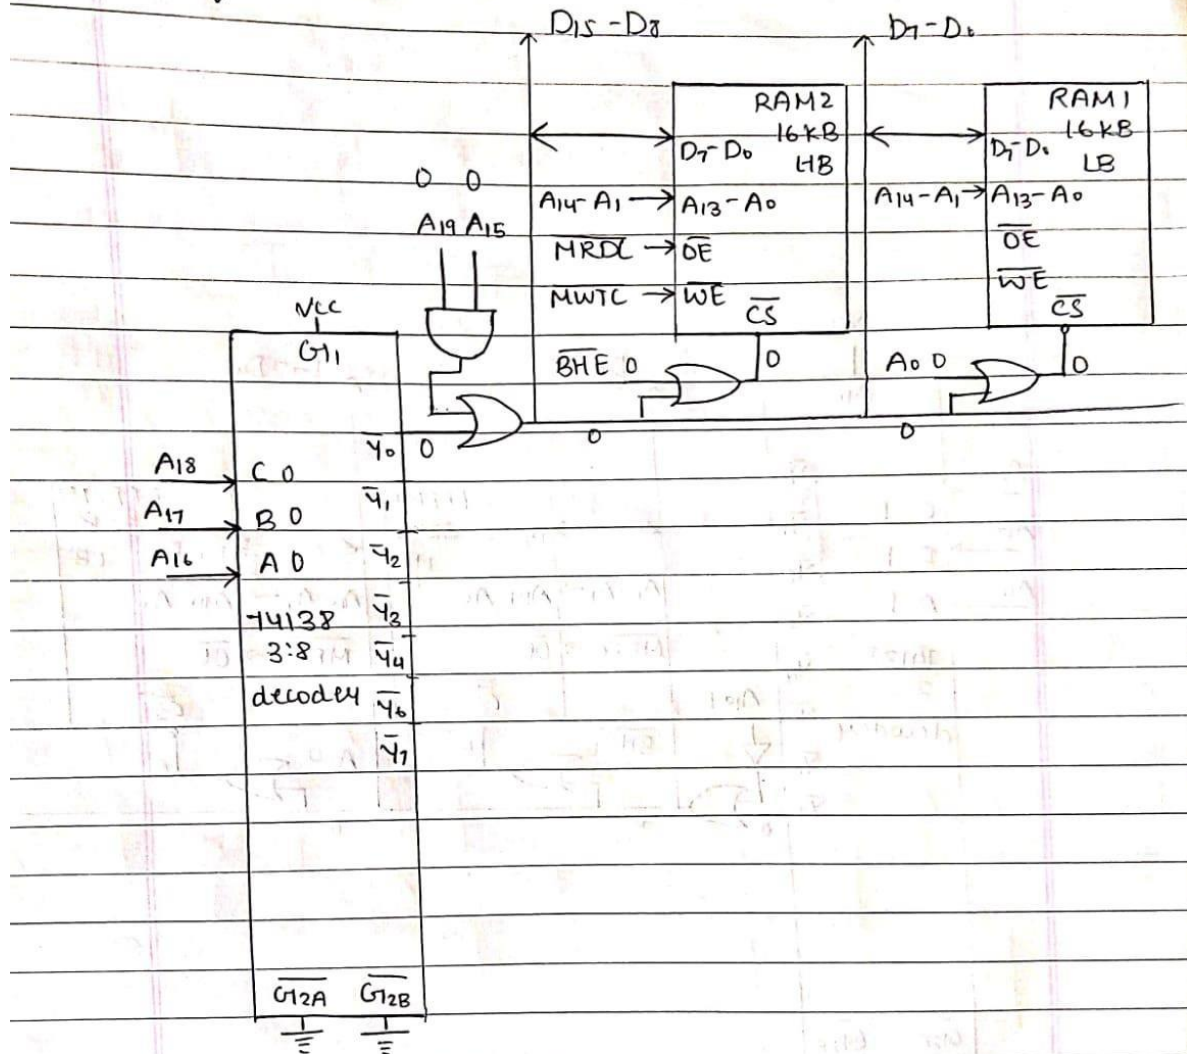 D15 - D8
D7 - D0
RAM2
16KB
HB
D7 - D0
A14 - A1 → A13 - A0
M̅R̅D̅C̅ → O̅E̅
MWTC → W̅E̅
C̅S̅
RAM1
16KB
LB
D7 - D0
A14 - A1 → A13 - A0
O̅E̅
W̅E̅
C̅S̅
0 0
A19 A15
VCC
G1
B̅H̅E̅ 0
0
A0 0
0
Y̅0 0
0
0
A18 C 0
Y̅1
A17 B 0
A16 A 0
Y̅2
74138
Y̅3
3:8
Y̅4
decoder
Y̅6
Y̅7
G̅2̅A̅ G̅2̅B̅